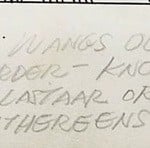 WANGS OU
RDER - KNO
LASTAAR OR
THEREENS